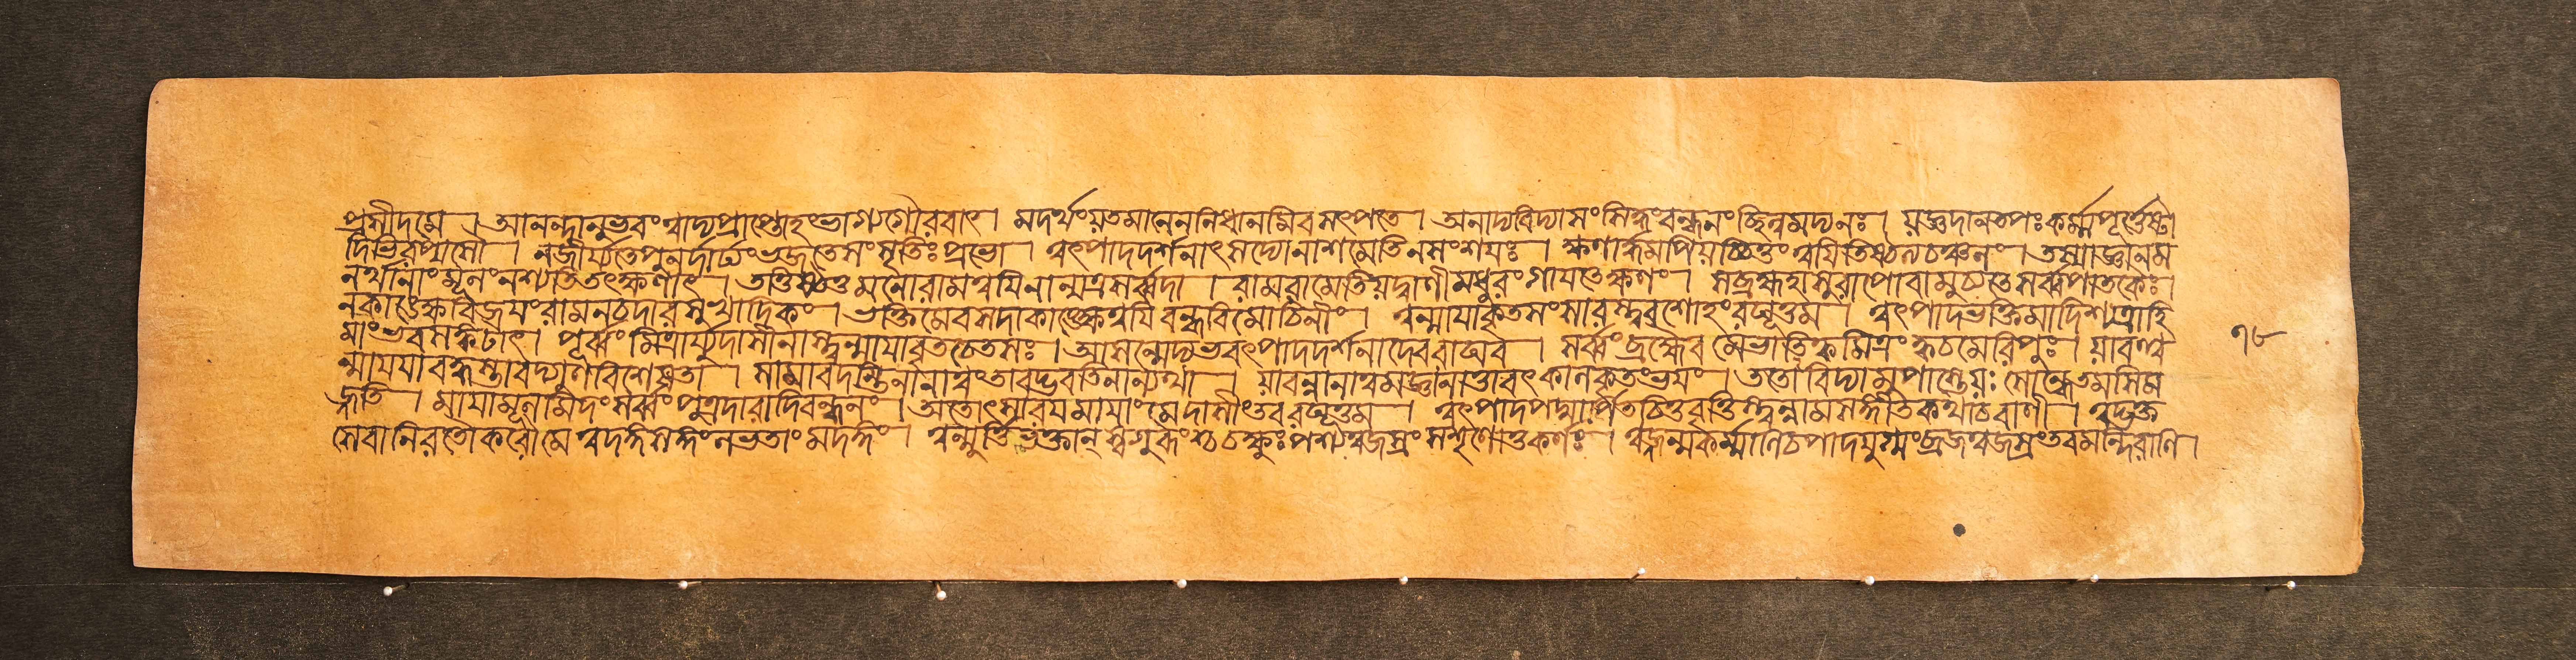 প্রসীদমে । আনন্দানুভবংত্বাদ্যপ্রাপ্তোহংভাগ্যগৌরবাৎ । মদর্থংয়তমানেননিধানমিবসৎপতে । অনাদ্যবিদ্যাসংসিদ্ধংবন্ধনংচ্ছিন্নমদ্যনঃ । য়জ্ঞদানতপঃকর্ম্মপূর্ত্তেষ্টা
দিভিরপ্যসৌ । নজীর্য্যতেপুনর্দার্ঢ্যংভজতেসংসৃতিঃপ্রভো । ত্বৎপাদদর্শনাৎসদ্যোনাশমেতিনসংশয়ঃ । ক্ষণার্দ্ধমপিয়চ্চিত্তংত্বয়িতিষ্ঠত্যচঞ্চলং । তস্যাজ্ঞানম
নর্থানাংমূলংনশ্যতিতৎক্ষণাৎ । তত্তিষ্ঠতুমনোরামত্বয়িনান্যত্রসর্ব্বদা । রামরামেতিয়দ্বাণীমধুরংগায়তেক্ষণং । সব্রহ্মহাসুরাপোবামুচ্যতেসর্ব্বপাতকৈঃ ।
নকাঙ্ক্ষেবিজয়ংরামনচদারসুখাদিকং । ভক্তিমেবসদাকাঙ্ক্ষেত্বয়িবন্ধবিমোচিনীং । ত্বন্মায়াকৃতসংসারস্ত্বদংশোহংরঘূত্তম । ত্বৎপাদভক্তিমাদিশ্যত্রাহি
মাংভবসঙ্কটাৎ । পূর্ব্বংমিত্রার্য্যুদাসীনাস্ত্বন্মায়াবৃতচেতসঃ । আসন্মেদ্যভবৎপাদদর্শনাদেবরাঘব । সর্ব্বংব্রহ্মৈবমেভাতিক্বমিত্রংক্বচমেরিপুঃ । য়াবত্ত্ব
ন্মায়য়াবদ্ধস্তাবদ্গুণবিশেষতা । সায়াবদস্তিনানাত্বংতাবদ্ভবতিনান্যথা । য়াবন্নানাত্বমজ্ঞানাত্তাবৎকালকৃতংভয়ং । অতোবিদ্যামুপাস্তেয়ঃসোন্ধেতমসিম
জ্জতি । মায়ামূলমিদংসর্ব্বংপুত্রদারাদিবন্ধনং । অতোৎসারয়মায়াংমেদাসীংতবরঘূত্তম । ত্বৎপাদপদ্মার্পিতচিত্তবৃত্তিস্ত্বন্নামসঙ্গীতকথাচবাণী । ত্বদ্ভক্ত
সেবানিরতৌকরৌমেত্বদঙ্গসঙ্গংলভতাংমদঙ্গং । ত্বন্মূর্ত্তিভক্তান্ স্বগুরুংশ্চচক্ষুঃপশ্যত্বজস্রংসশৃণোতুকর্ণঃ । ত্বজ্জন্মকর্ম্মাণিচপাদয়ুগ্মংব্রজত্বজস্রংতবমন্দিরাণি ।
৭৮